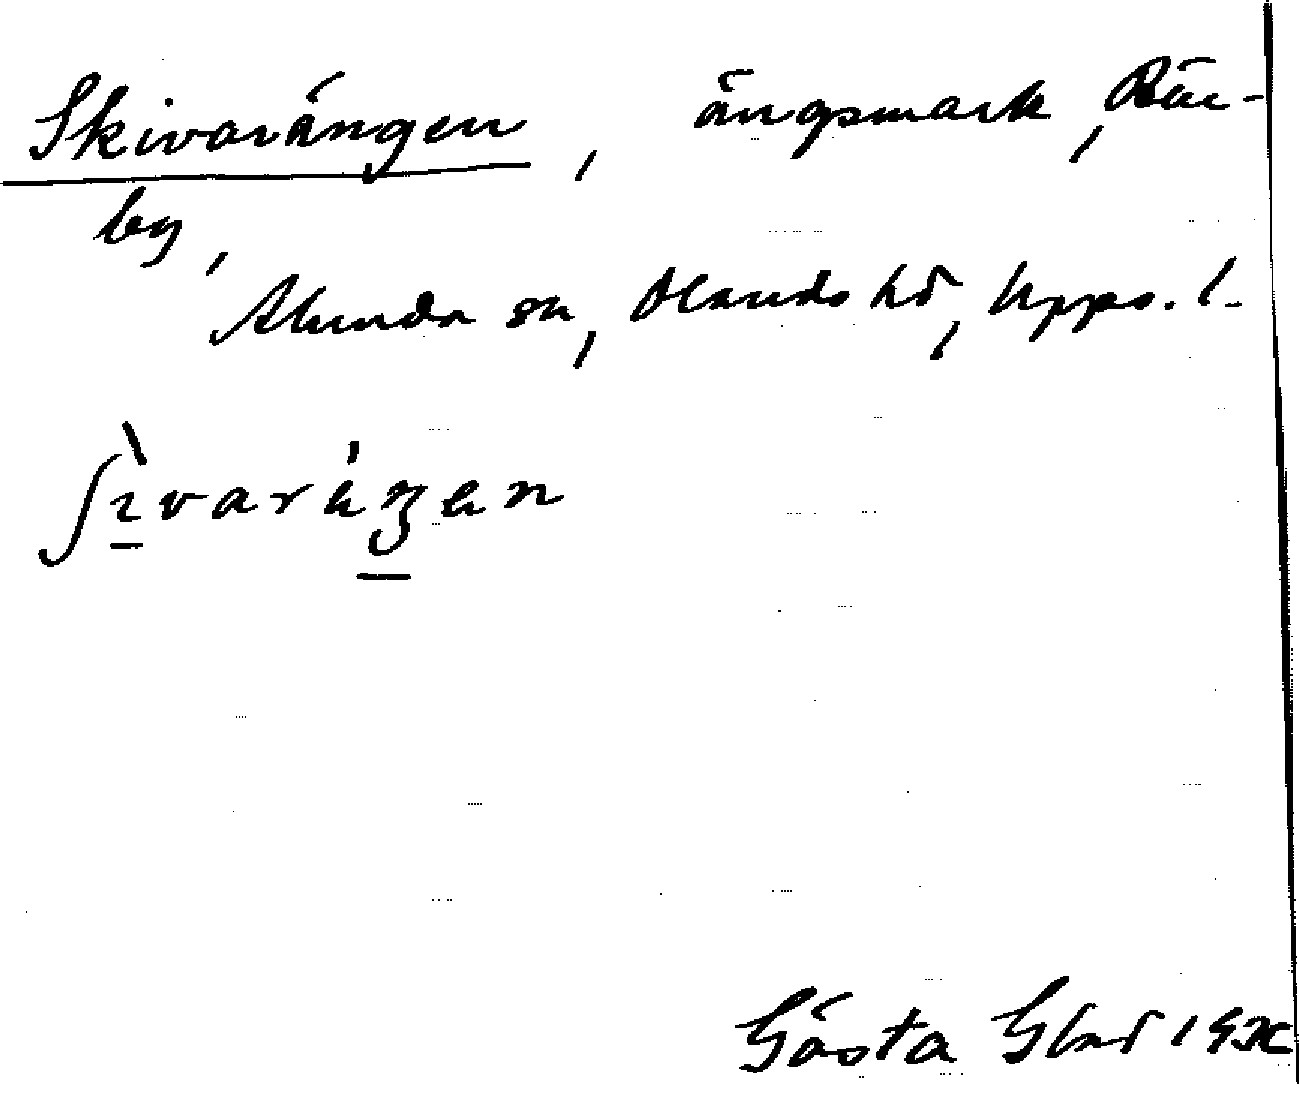 Skivarängen, ängsmark, Rär-
by,
Alunda sn, Olands hd, Upps. l.
ʃìvaräŋen
Gösta Glad